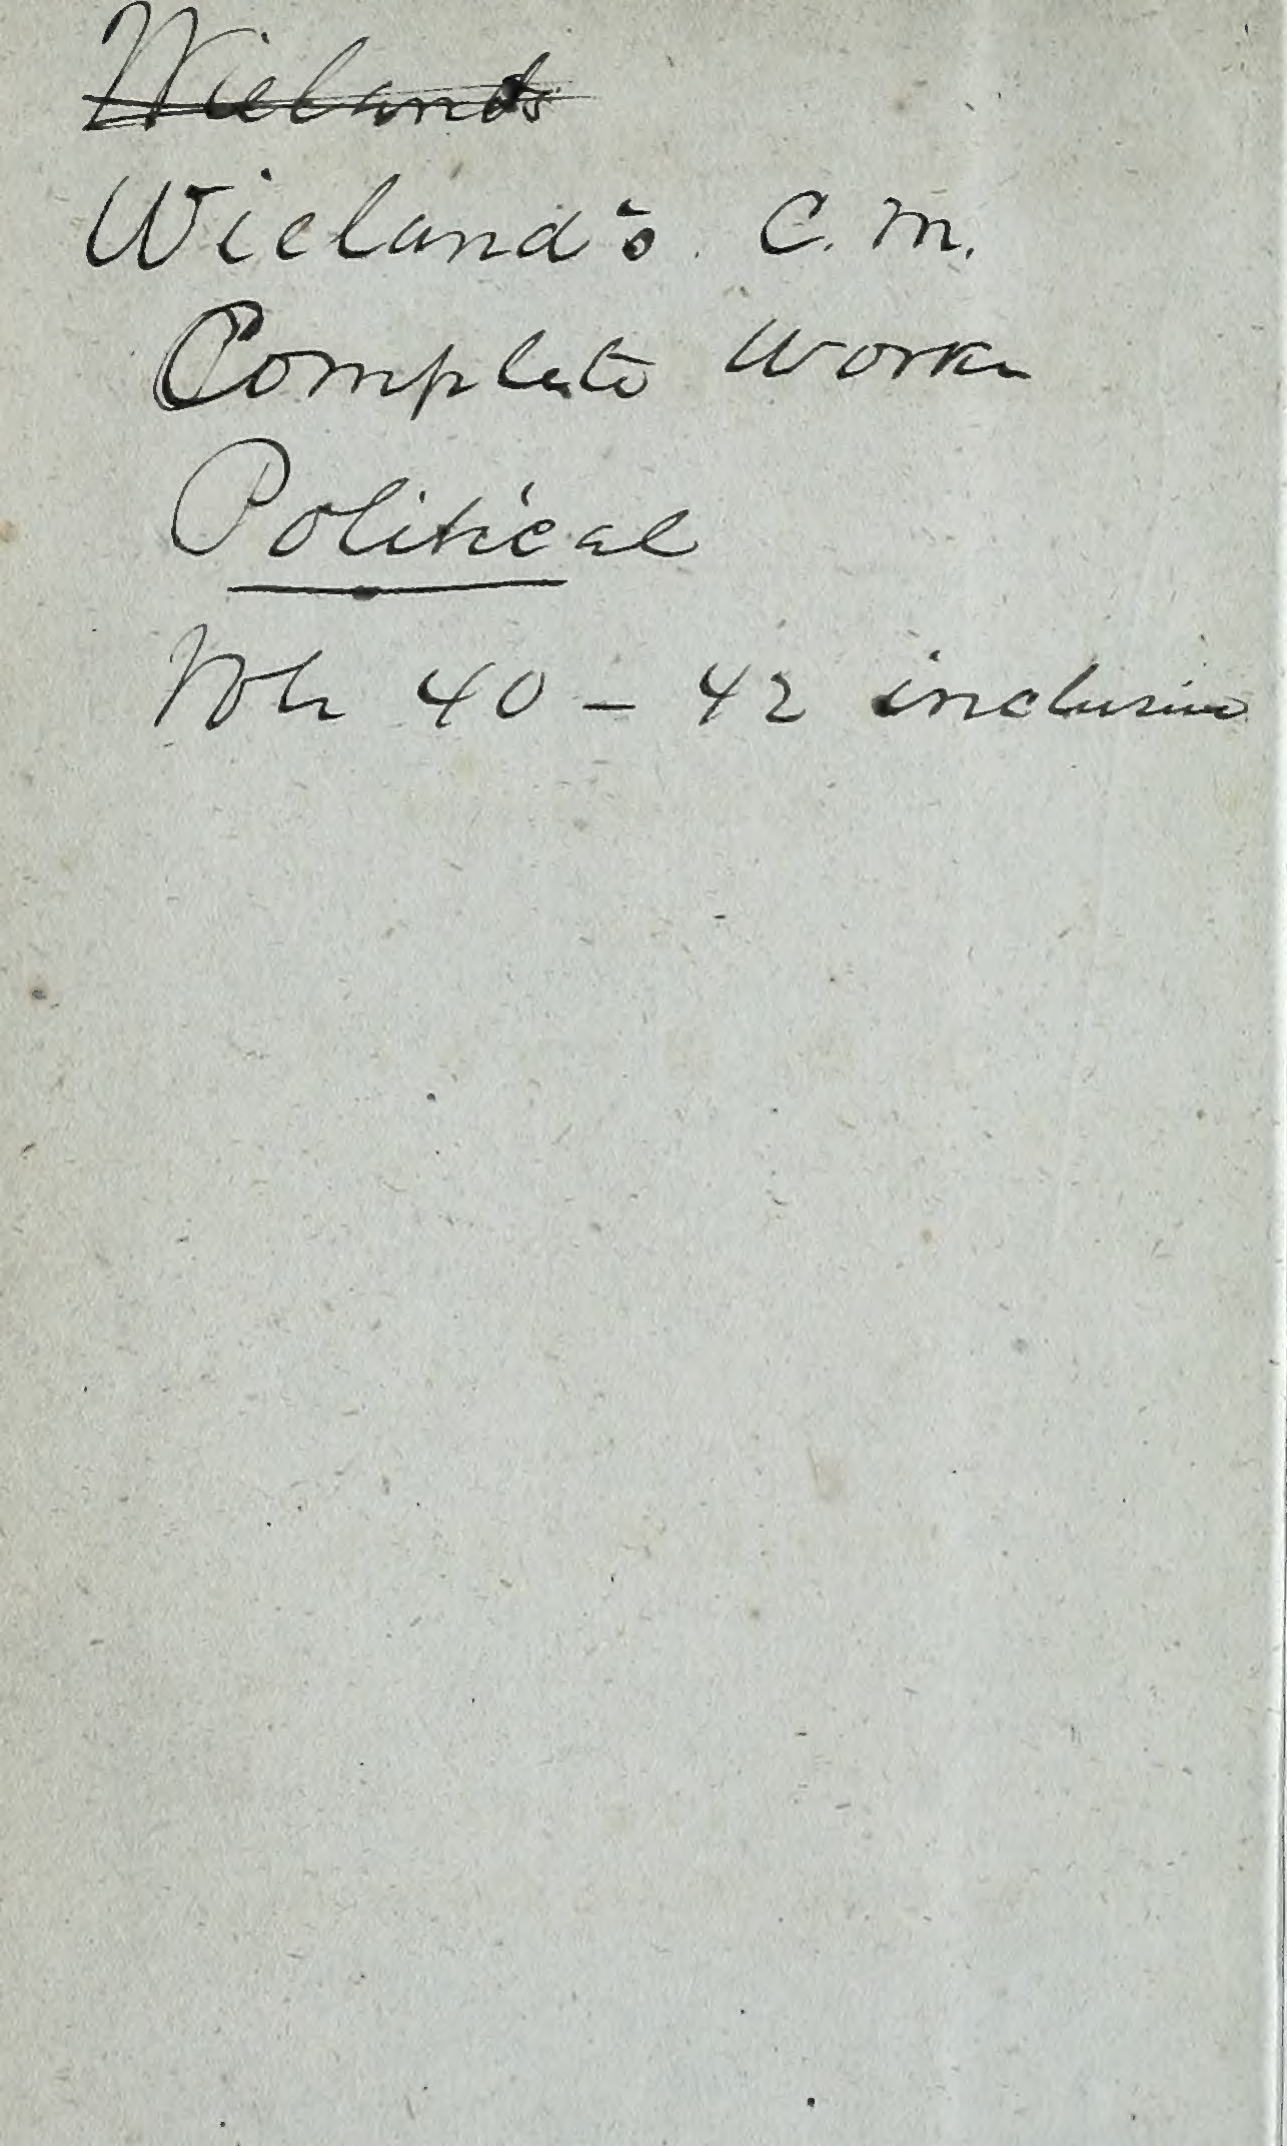 Wielands
Wieland's. C. M.
Complete Works
Political
Vols 40 - 42 inclusive